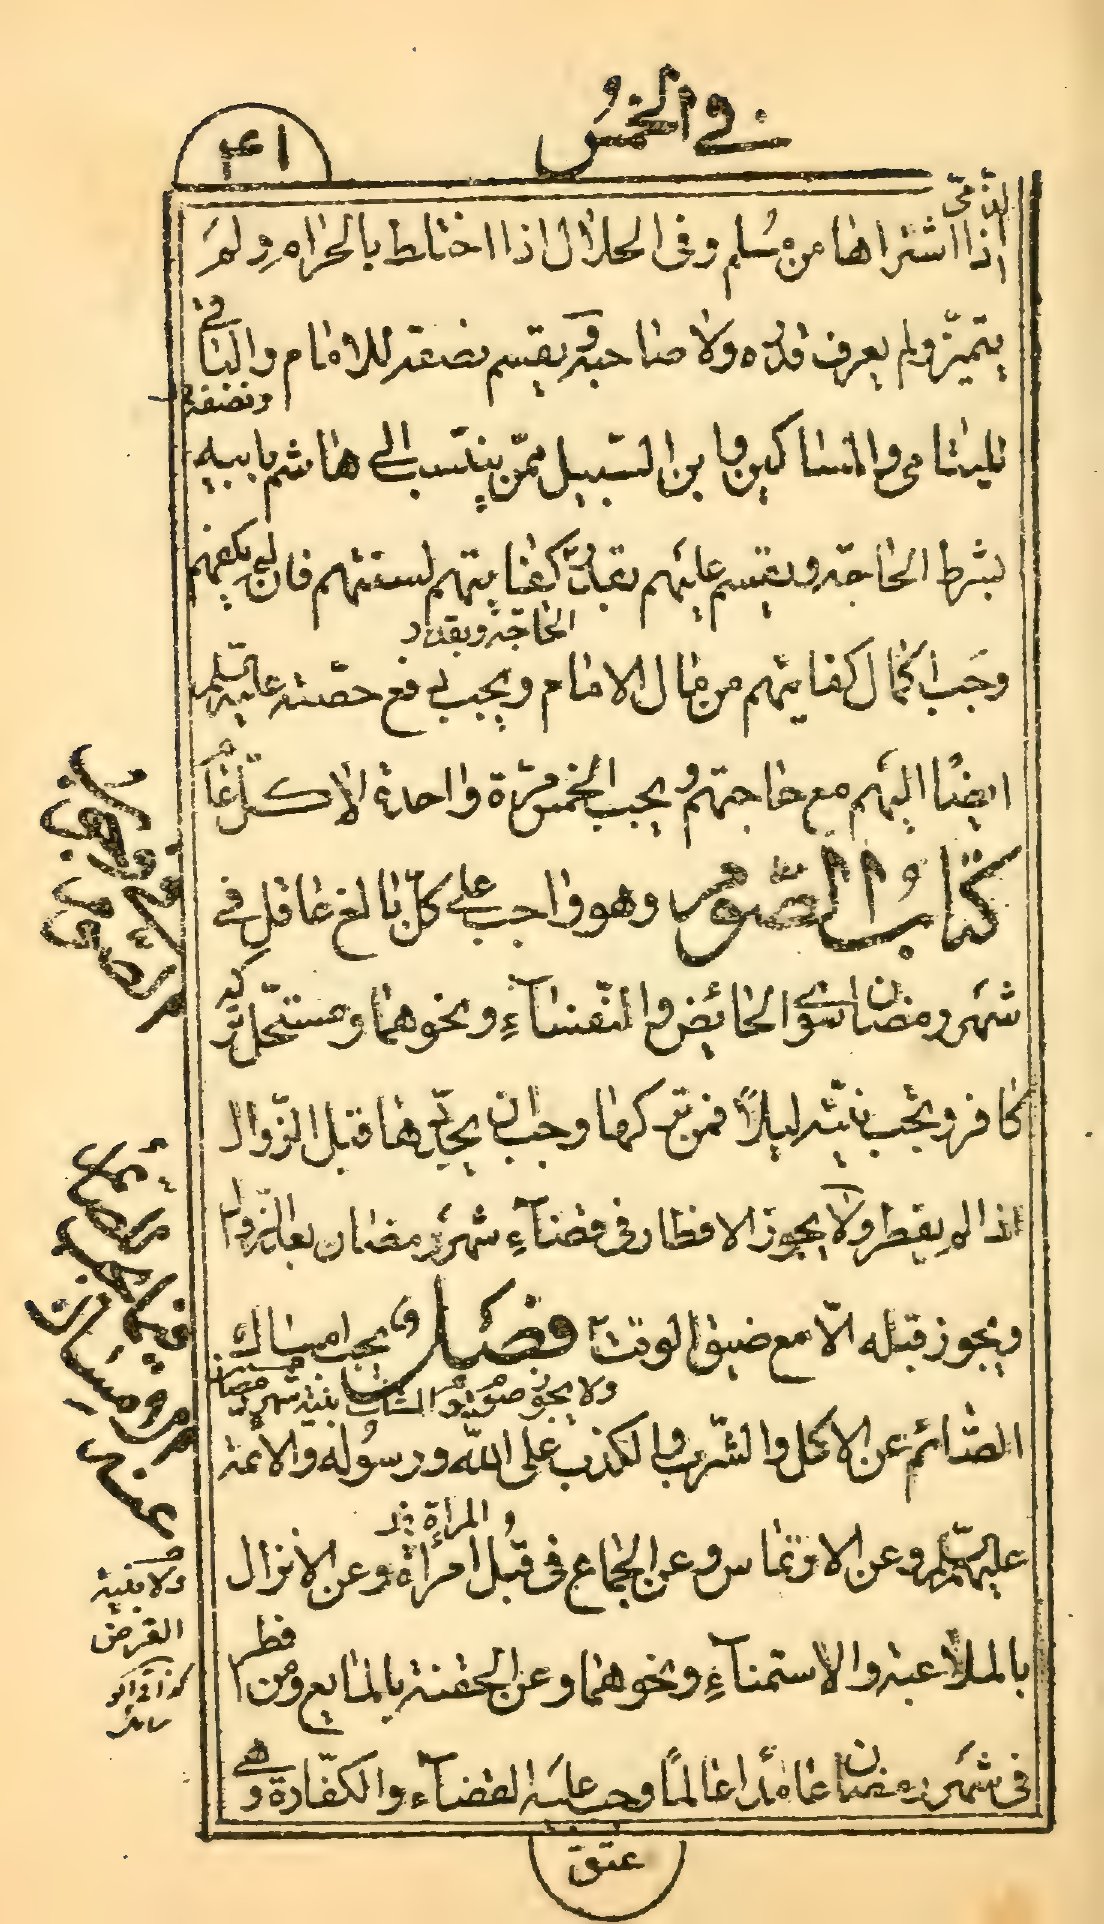 في الخمس
الذّمّى
اذا اشتراها من مسلم وفى الحلال اذا اختلط بالحرام ولم
يتميّز ولم يعرف قدره ولا صاحبه ويقسم نصفه للامام والباقى
ونصفه
لليتامى والمساكين وابن السّبيل ممّن ينتسب الى هاشم بابيه
بشرط الحاجة ويقسم عليهم بقدر كفايتهم لسنتهم فان لم يكفهم
الحاجة وبقدر
وجب اكمال كفايتهم من مال الامام ويجب دفع حصّته عليه السّلم
ايضًا اليهم مع حاجتهم ويجب الخمس مرّة واحدة لا كلّ عام
كتاب الصّوم وهو واجب على كلّ بالغ عاقل فى
شهر رمضان سوى الحائض والنّفساء ونحوهما ومستحلّ تركه
كافر ويجب نيّته ليلًا فمن تركها وجب ان يجدّدها قبل الزّوال
اذا لم يفطر ولا يجوز الافطار فى قضاء شهر رمضان بعد الزّوال
ويجوز قبله الّا مع ضيق الوقت فصل ويجب امساك
ولا يجوز صوم يوم الشك بنية شهر رمضان
الصّائم عن الاكل والشّرب والكذب على اللّه ورسوله والائمة
عليهم السّلم وعن الارتماس وعن الجماع فى قبل امرأة وعن الانزال
والمرأة
بالملاعبة والاستمناء ونحوهما وعن الحقنة بالمايع ومن افطر
فى شهر رمضان عامدًا عالمًا وجب عليه القضاء والكفّارة وهى
عتق
الصائم
فيما يجب
امساك
عنه
ولا بنية
الفرض